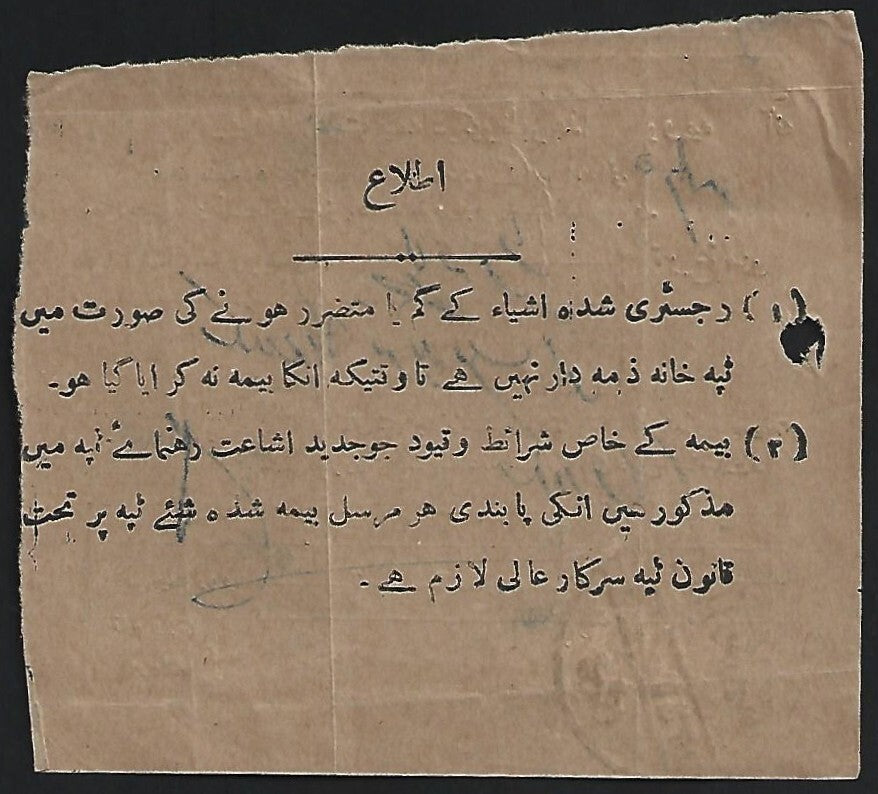 اطلاع
(۱) رجسٹری شدہ اشیاء کے گم یا متضرر ہونے کی صورت میں
ٹپہ خانہ ذمہ دار نہیں ہے تاوقتیکہ انکا بیمہ نہ کرایا گیا ہو۔
(۲) بیمہ کے خاص شرائط و قیود جو جدید اشاعت رہنمائے ٹپہ میں
مذکور ہیں انکی پابندی ہر مرسل بیمہ شدہ شئے ٹپہ پر تحت
قانون ٹپہ سرکار عالی لازم ہے۔